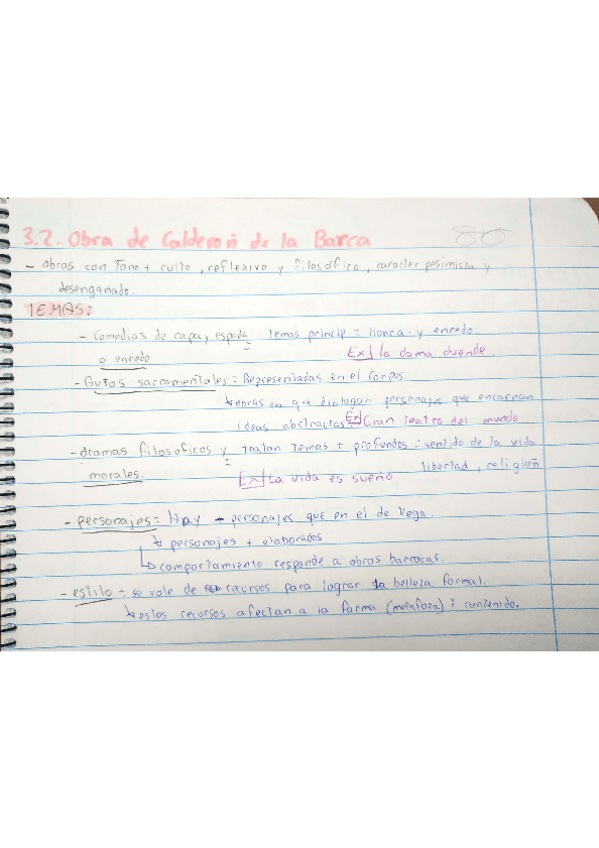 3.2. Obra de Calderoñ de la Barca
- obras con Tono + culto, reflexivo y filosófico, caracter pesimista y
desengañado.
TEMAS:
- Comedias de capa y espada Temas princip = Honra - y enredo.
o enredo Ex] la dama duende
- Autos sacramentales = Representadas en el Corpus
↳ obras en que dialogan personajes que encarnan
ideas abstractas Ex] Gran Teatro del mundo
- dramas filosoficos y tratan Temas + profundos = sentido de la vida
morales. libertad, religioñ
Ex] La vida es sueño
- personajes = Hay - personajes que en el de Vega.
↳ personajes + elaborados
↳ comportamiento responde a obras barrocas.
- estilo = se vale de recursos para lograr la belleza formal.
↳ estos recursos afectan a la forma (metafora) i contenido.